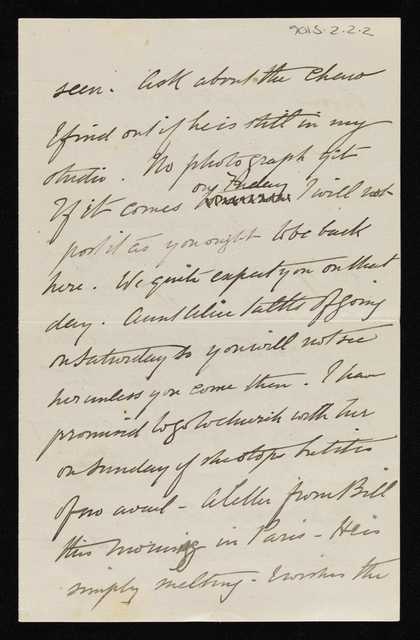 9015-2-2-2
seen. Ask about the Chow
& find out if he is still in my
studio. No photograph yet
on Friday
If it comes I will not
post it as you ought to be back
here. We quite expect you on that
day. Aunt Alice talks of going
on Saturday so you will not see
her unless you come then. I have
promised to go to church with her
on Sunday if she stops but it is
of no avail - A letter from Bill
this morning in Paris - He is
simply melting - & wishes the